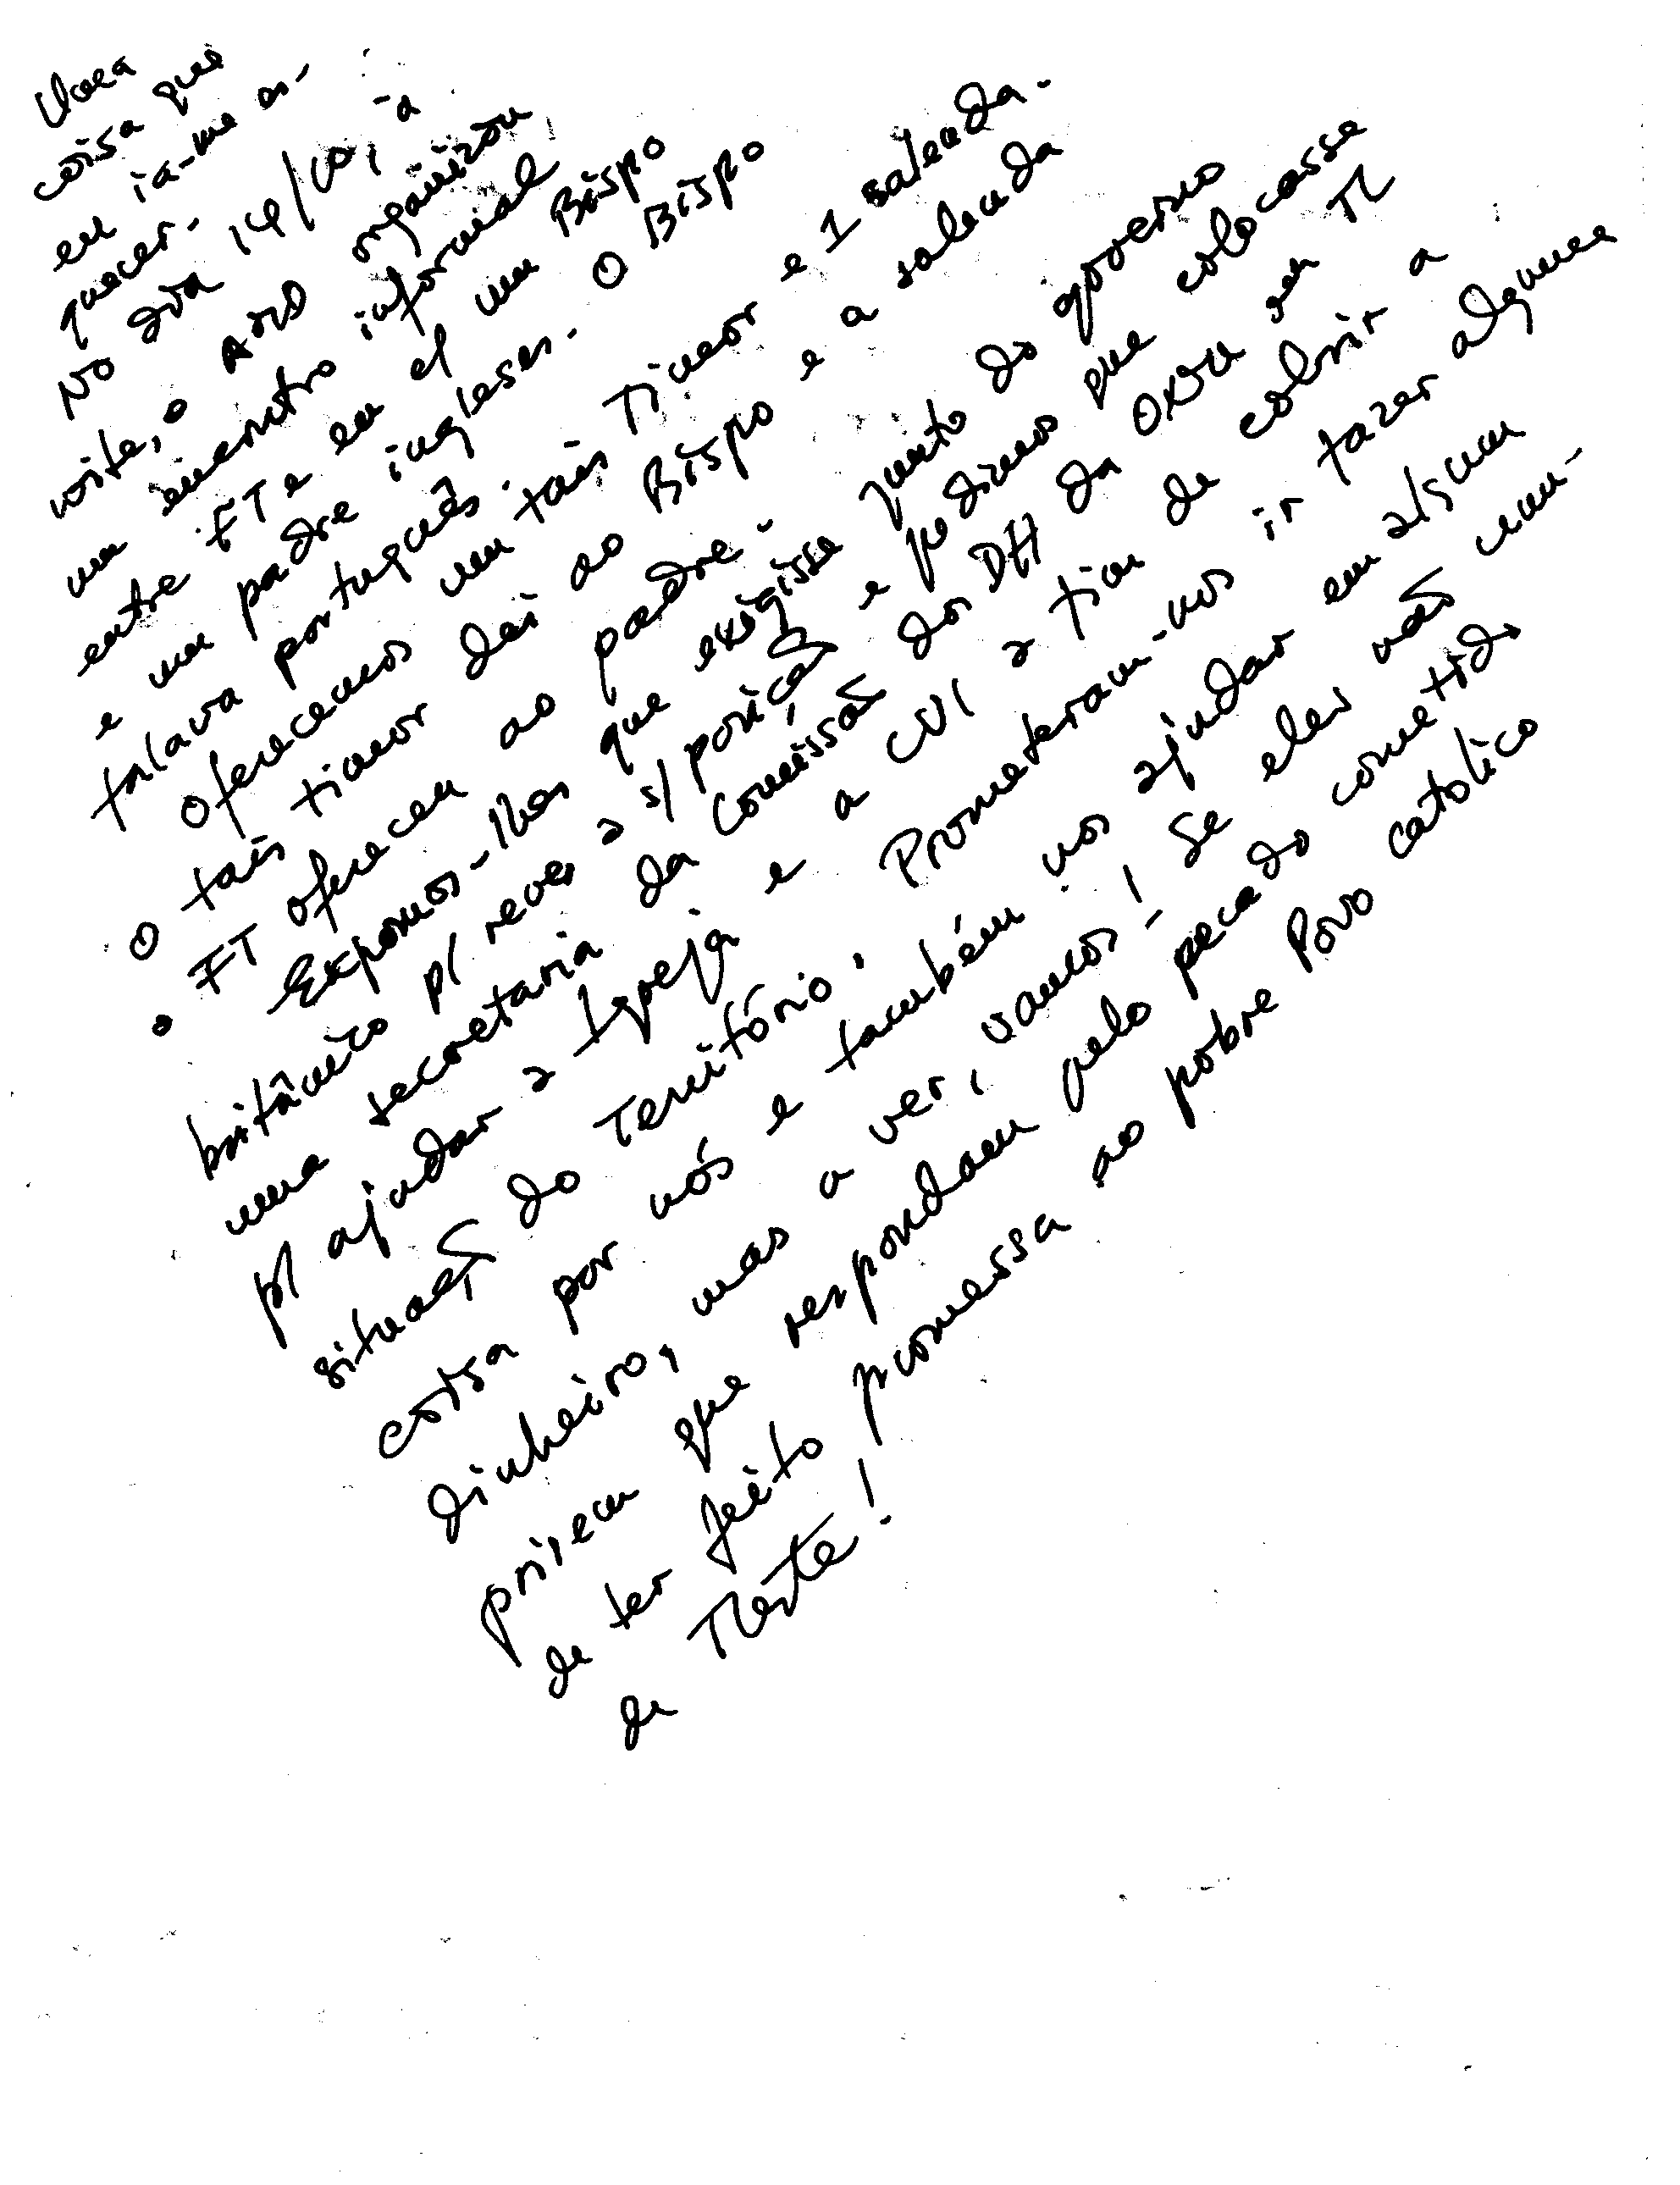 Uma
coisa que
eu ia-me es-
quecer.
No dia 14/10, à
noite, o Ario organizou
um encontro informal
entre FT e eu c/ um Bispo
e um padre ingleses. O Bispo
falava português.
Oferecemos um tais Timor e 1 salenda.
O tais timor dei ao Bispo e a salenda
o FT ofereceu ao padre.
Expomos-lhes que exigisse junto do governo
britânico p/ rever a s/ posição e pedimos que colocasse
uma secretaria da Comissão dos DH da ONU em TL
p/ ajudar a Igreja e a CVI a fim de cobrir a
situação do Território. Prometeram-nos ir fazer alguma
coisa por nós e também nos ajudar em algum
dinheiro, mas a ver, vamos! Se eles não cum-
prirem que respondam pelo pecado cometido
de ter feito promessa ao pobre Povo católico
de TLeste!